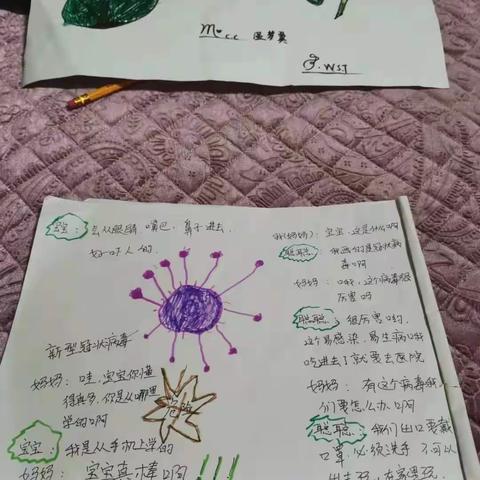 WST
宝宝：会从眼睛、嘴巴、鼻子进去，
好吓人的.
新型冠状病毒
妈妈：哇，宝宝你懂
得真多，你是从哪里
学的啊
危险
宝宝：我是从手机上学的
妈妈：宝宝真棒啊!!!
我(妈妈)：宝宝，这是什么啊
聪聪：我画的是冠状病
毒啊
妈妈：哦，这个病毒很
厉害吗
聪聪：很厉害的，
这个易感染，易生病
吃进去了就要去医院
妈妈：有这个病毒我
们要怎么办啊
聪聪：我们出口要戴
口罩 必须洗手 不可以
出去玩，在家里玩.